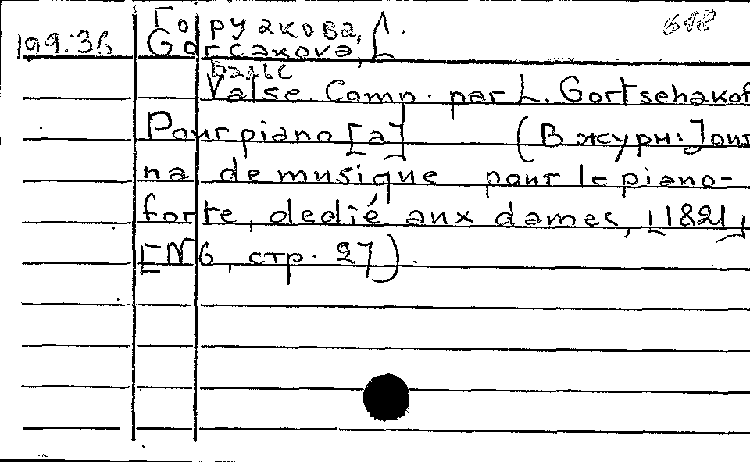 648
Горчакова, Л.
199:36 Gorčakova, L
Вальс
Valse. Comp. par L. Gortschakof
Pour piano [a] (В журн: Jour
nal de musique pour le piano-
forte, dedié aux dames, [1821]
[N 6, стр. 27)